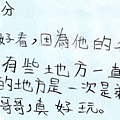 分
好看,因為他的
有些地方一直
的地方是一次是
哥哥,真好玩。